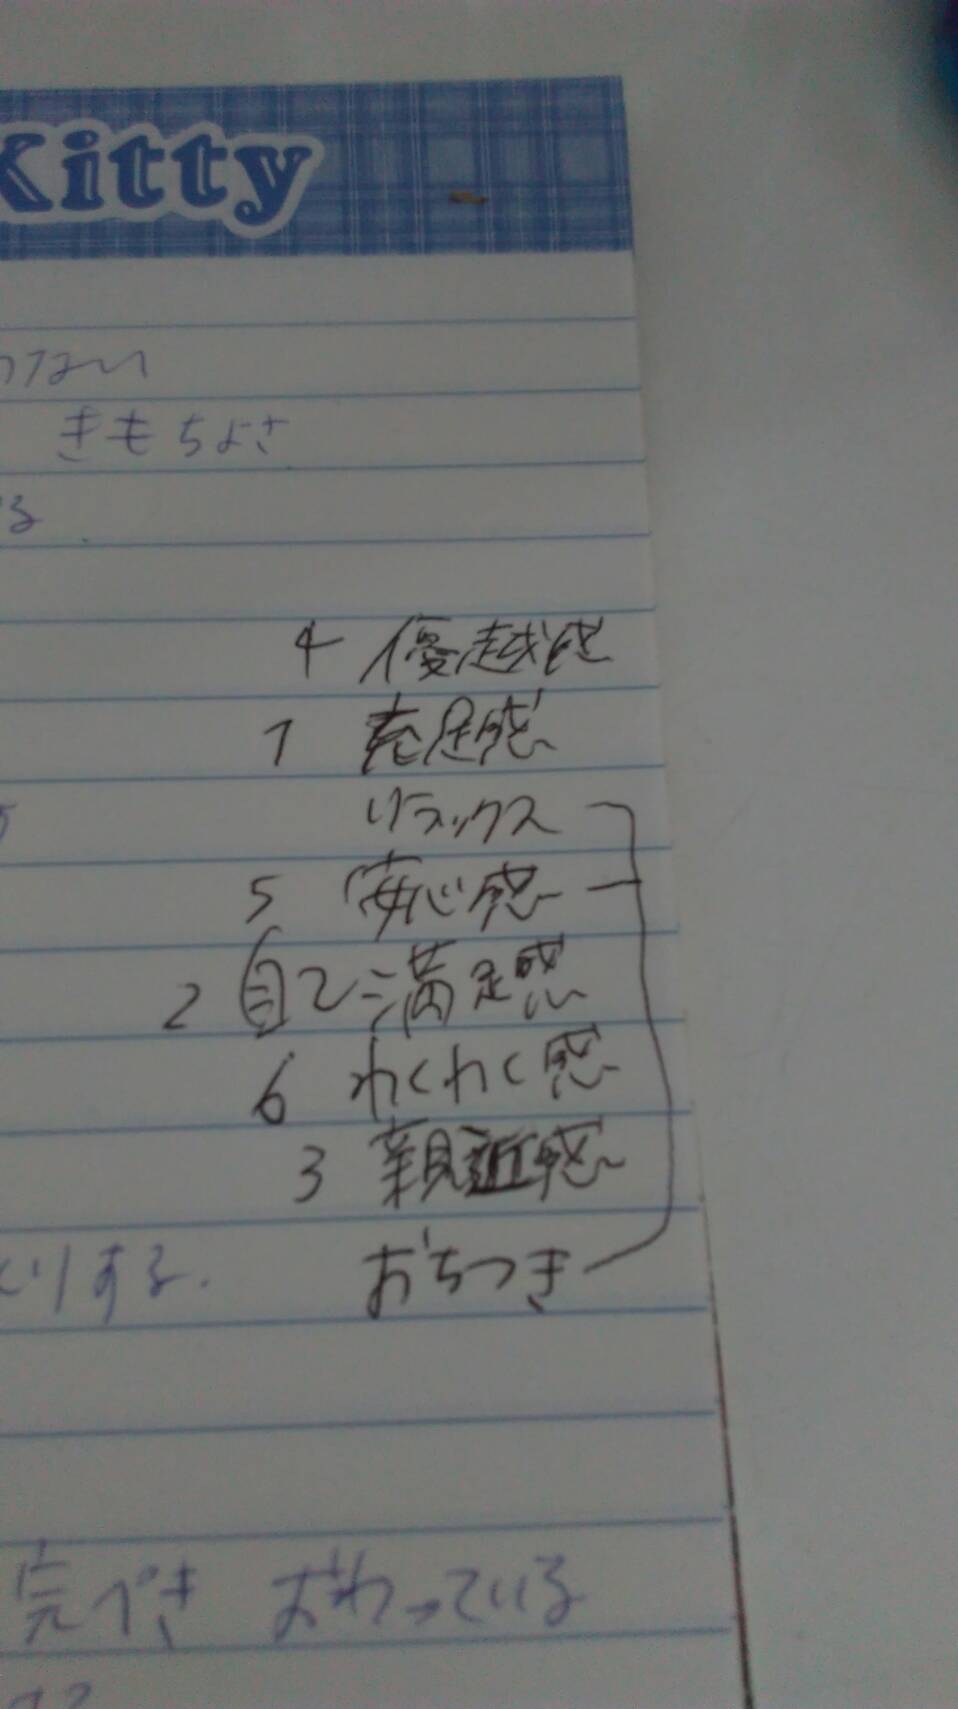 Kitty
ない
きもちよさ
る
4 優越感
1 充足感
リラックス
5 安心感
2 自己満足感
6 わくわく感
3 親近感
おちつき
りする.
完ぺき おわっている